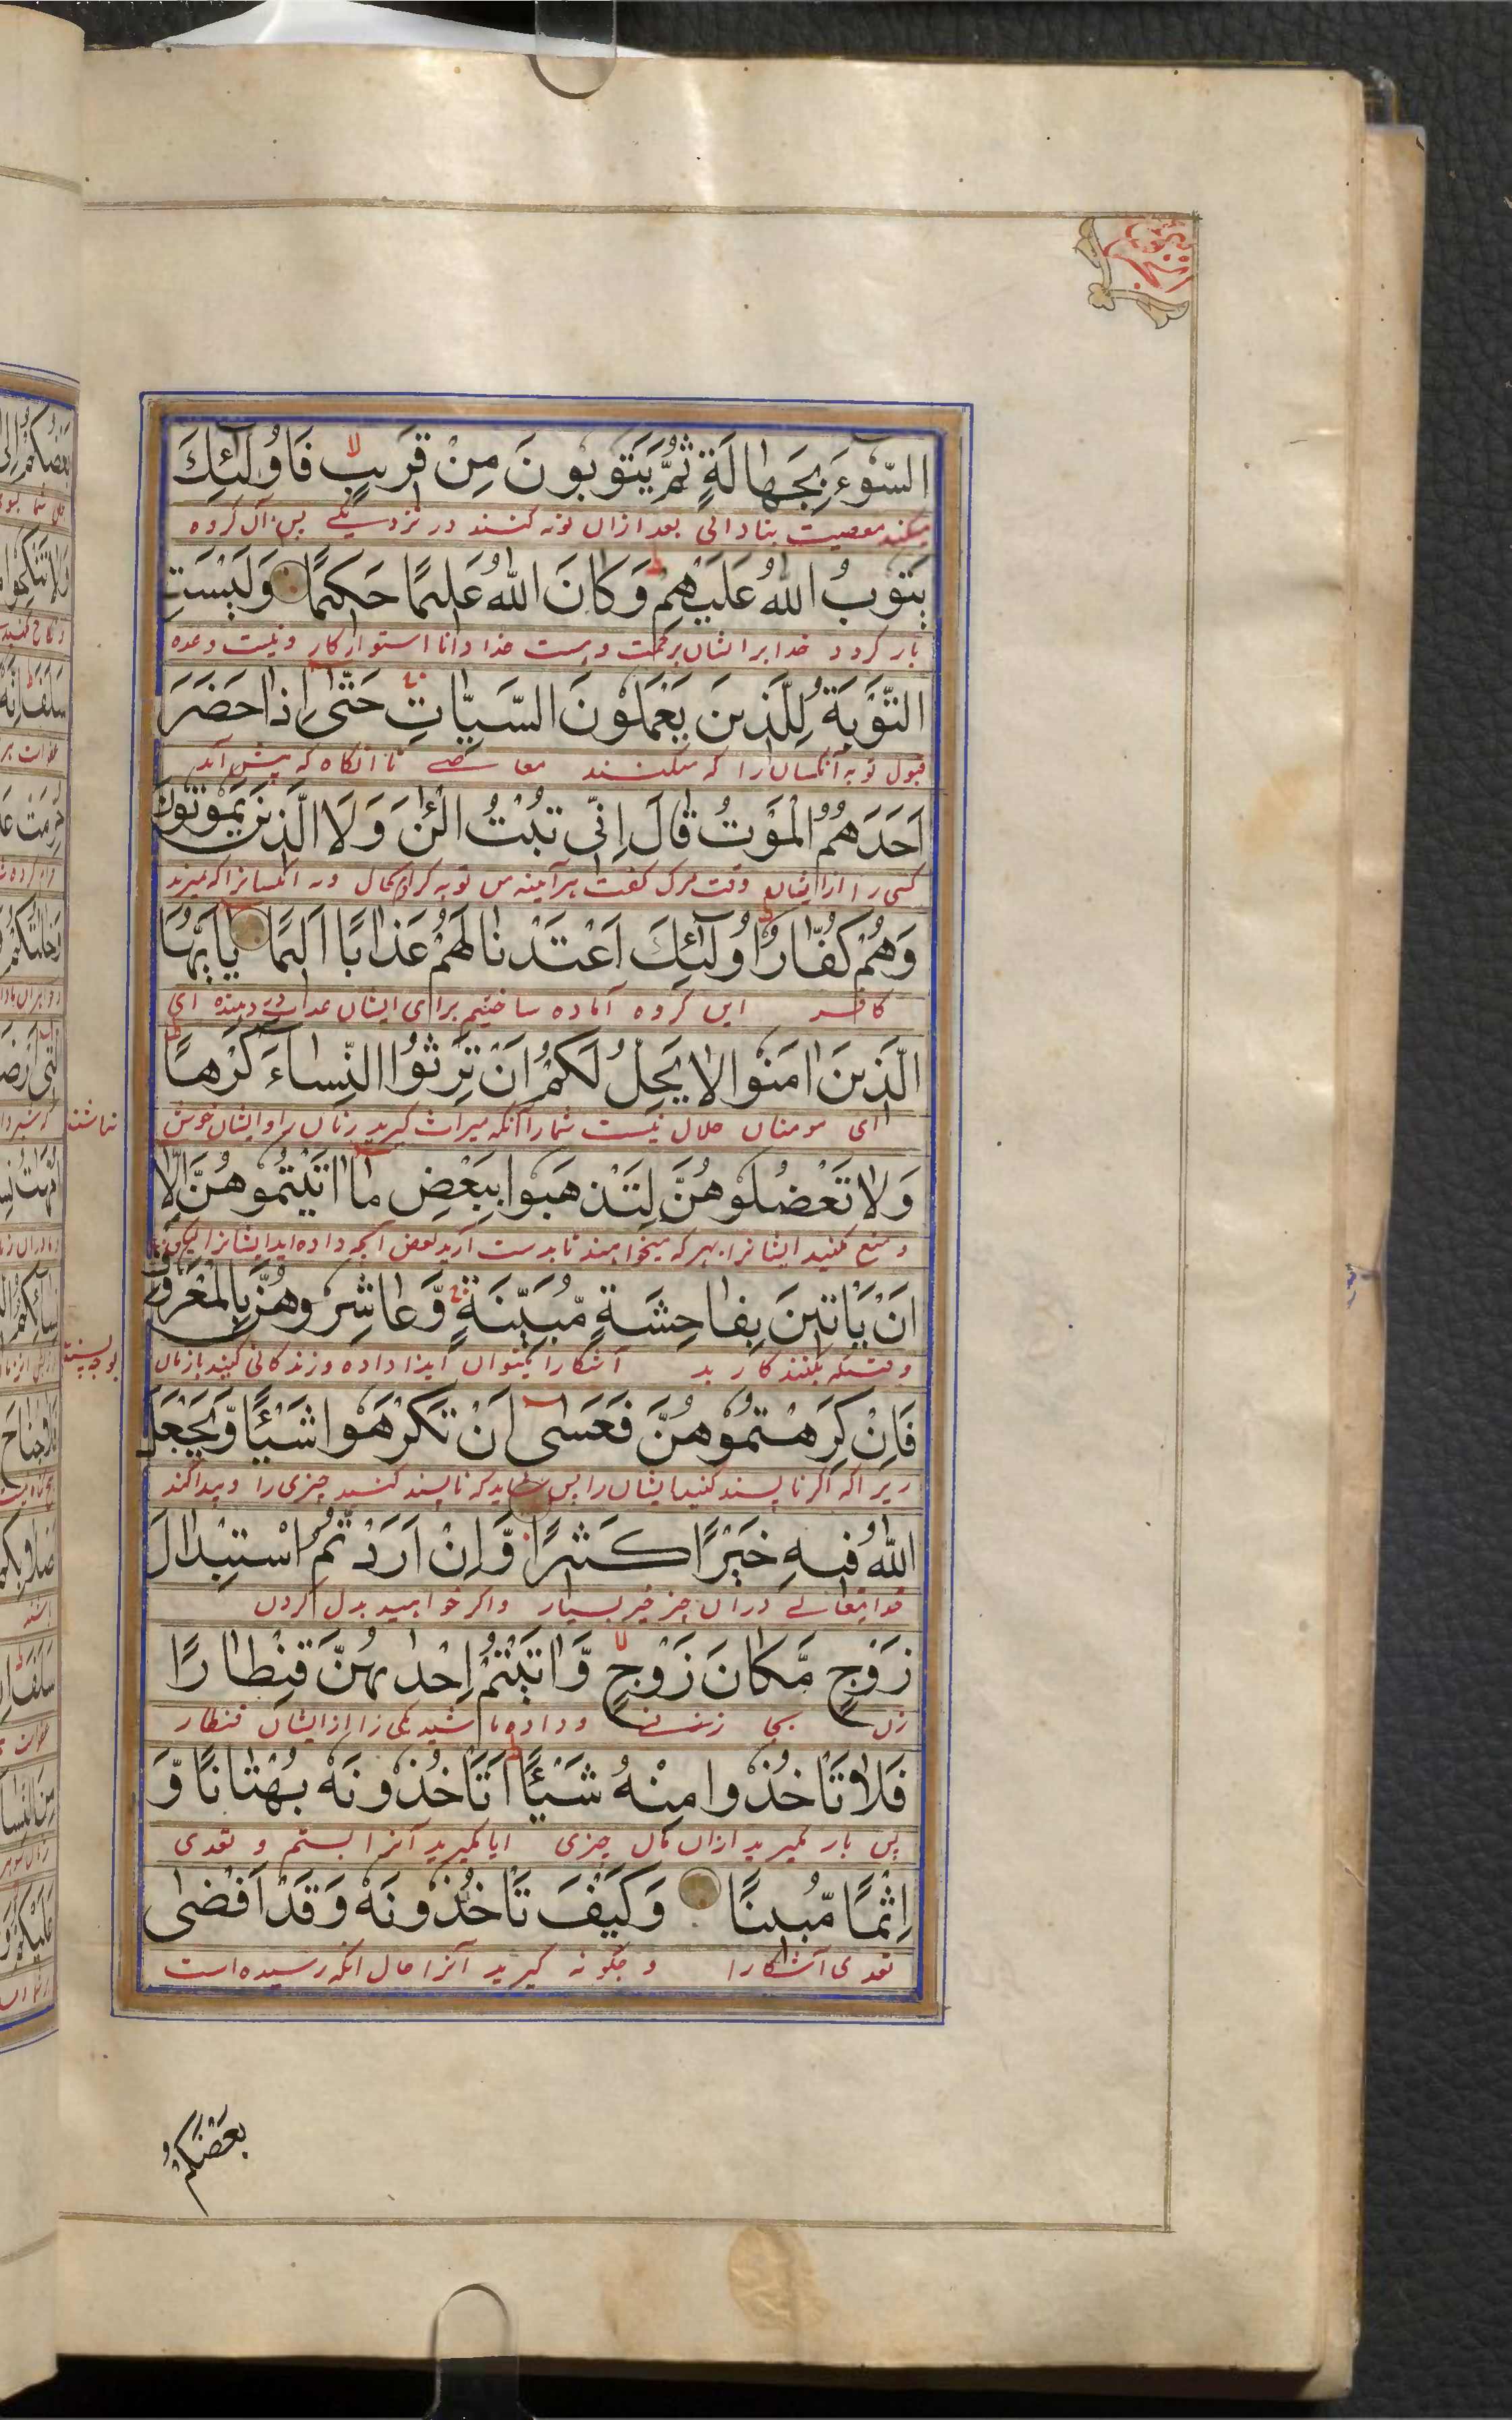 السُّوْءَ بِجَهَالَةٍ ثُمَّ يَتُوبُونَ مِنْ قَرِيبٍ فَاُولٰٓئِكَ
ميكنند معصيت بنادانى بعد ازان توبه كنند در نزديكے پس آن گروه
يَتُوبُ اللّٰهُ عَلَيْهِمْ وَكَانَ اللّٰهُ عَلِيمًا حَكِيمًا وَلَيْسَتِ
باز گردد خدا بر ايشان برحمت و هست خدا دانا استوار كار و نيست وعده
التَّوْبَةُ لِلَّذِينَ يَعْمَلُونَ السَّيِّاٰتِ حَتّٰى اِذَا حَضَرَ
قبول توبه آنكسان را كه ميكنند معاصے تا آنگاه كه پيش آيد
اَحَدَهُمُ الْمَوْتُ قَالَ اِنِّى تُبْتُ الْئٰنَ وَلَا الَّذِينَ يَمُوتُونَ
كسى را از ايشان وقت مرگ گفت هر آينه من توبه كردم كال ونه آنكسانرا كه بميرند
وَهُمْ كُفَّارٌ اُولٰٓئِكَ اَعْتَدْنَا لَهُمْ عَذَابًا اَلِيمًا يٰاَيُّهَا
كافر اين گروه آماده ساختيم براى ايشان عذاب درد دهنده اى
الَّذِينَ اٰمَنُوا لَا يَحِلُّ لَكُمْ اَنْ تَرِثُوا النِّسَاءَ كَرْهًا
اى مومنان حلال نيست شما را آنكه ميراث گيريد زنان را و ايشان خوش
نباشند
وَلَا تَعْضُلُوهُنَّ لِتَذْهَبُوا بِبَعْضِ مَا اٰتَيْتُمُوهُنَّ اِلَّا
و منع مكنيد ايشانرا بهر كه ميخواهند تا بدست آريد بعض آنچه داده ايد ايشانرا ليكن
اَنْ يَّاْتِينَ بِفَاحِشَةٍ مُّبَيِّنَةٍ وَّعَاشِرُوهُنَّ بِالْمَعْرُوفِ
وقتيكه بكنند كار بد آشكارا ميتوان ايذا داده و زندگانى كنيد بازنان
بوجه پسنديده
فَاِنْ كَرِهْتُمُوهُنَّ فَعَسٰى اَنْ تَكْرَهُوا شَيْئًا وَّيَجْعَلَ
زيرا كه اگر ناپسند كنيد ايشان را پس شايد كه ناپسند كنيد چيزى را و پيدا كند
اللّٰهُ فِيهِ خَيْرًا كَثِيرًا وَّاِنْ اَرَدْتُّمُ اسْتِبْدَالَ
خدايتعالے دران چيز خير بسيار و اگر خواهيد بدل كردن
زَوْجٍ مَّكَانَ زَوْجٍ وَّاٰتَيْتُمْ اِحْدٰىهُنَّ قِنْطَارًا
زن بجا زنے و داده باشيد يكى را از ايشان قنطار
فَلَا تَاْخُذُوا مِنْهُ شَيْئًا اَتَاْخُذُونَهُ بُهْتَانًا وَّ
پس باز مگيريد ازان مال چيزى ايا ميگيريد آنرا بستم و تعدى
اِثْمًا مُّبِينًا وَكَيْفَ تَاْخُذُونَهُ وَقَدْ اَفْضٰى
تعدى آشكارا و چگونه گيريد آنرا حال آنكه رسيده است
بَعْضُكُمْ